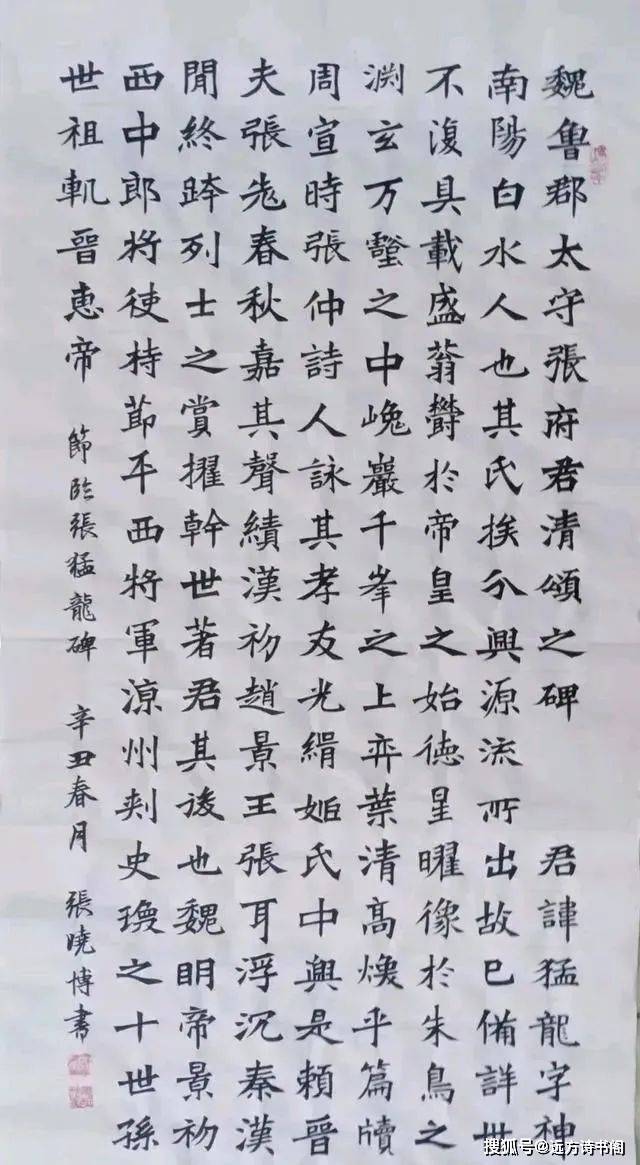 魏魯郡太守張府君清頌之碑 君諱猛龍字神
南陽白水人也其氏族分興源流所出故已備詳世
不復具載盛蓊欝於帝皇之始德星曜像於朱鳥之
淵玄万壑之中巉巖千峯之上弈葉清高煥乎篇牘
周宣時張仲詩人詠其孝友光緝姬氏中興是賴晉
夫張老春秋嘉其聲績漢初趙景王張耳浮沉秦漢
聞終跨列士之賞擢幹世著君其後也魏明帝景初
西中郎將使持節平西將軍涼州刺史瑍之十世孫
世祖軌晉惠帝 節臨張猛龍碑 辛丑春月 張曉博書
搜狐号@远方诗书阁